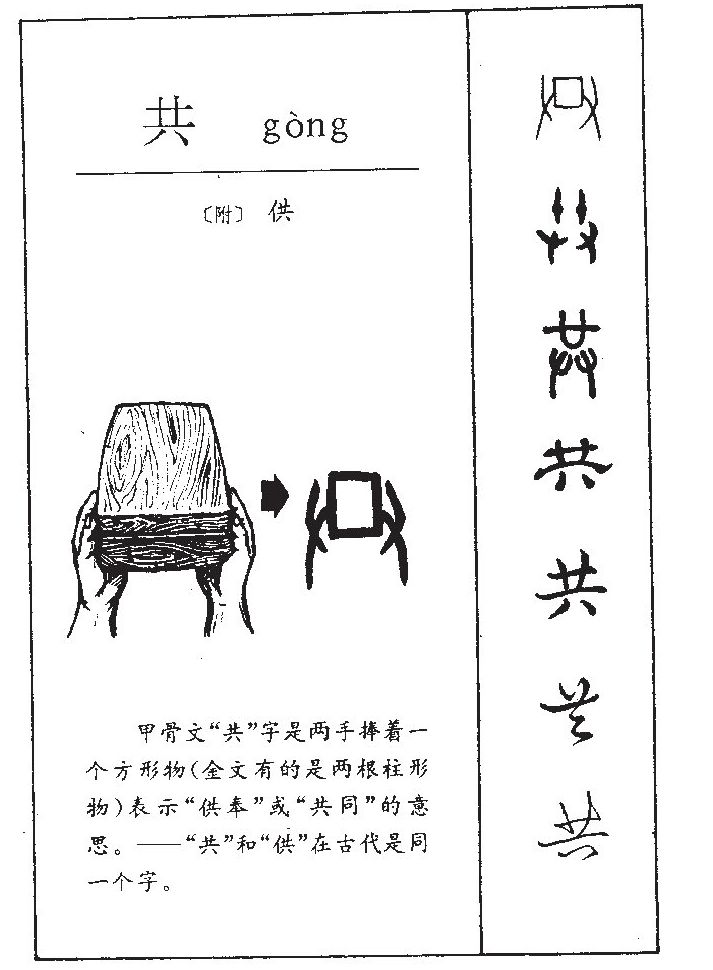 共 gòng
〔附〕 供
甲骨文“共”字是两手捧着一
个方形物(金文有的是两根柱形
物)表示“供奉”或“共同”的意
思。——“共”和“供”在古代是同
一个字。
共
共
共